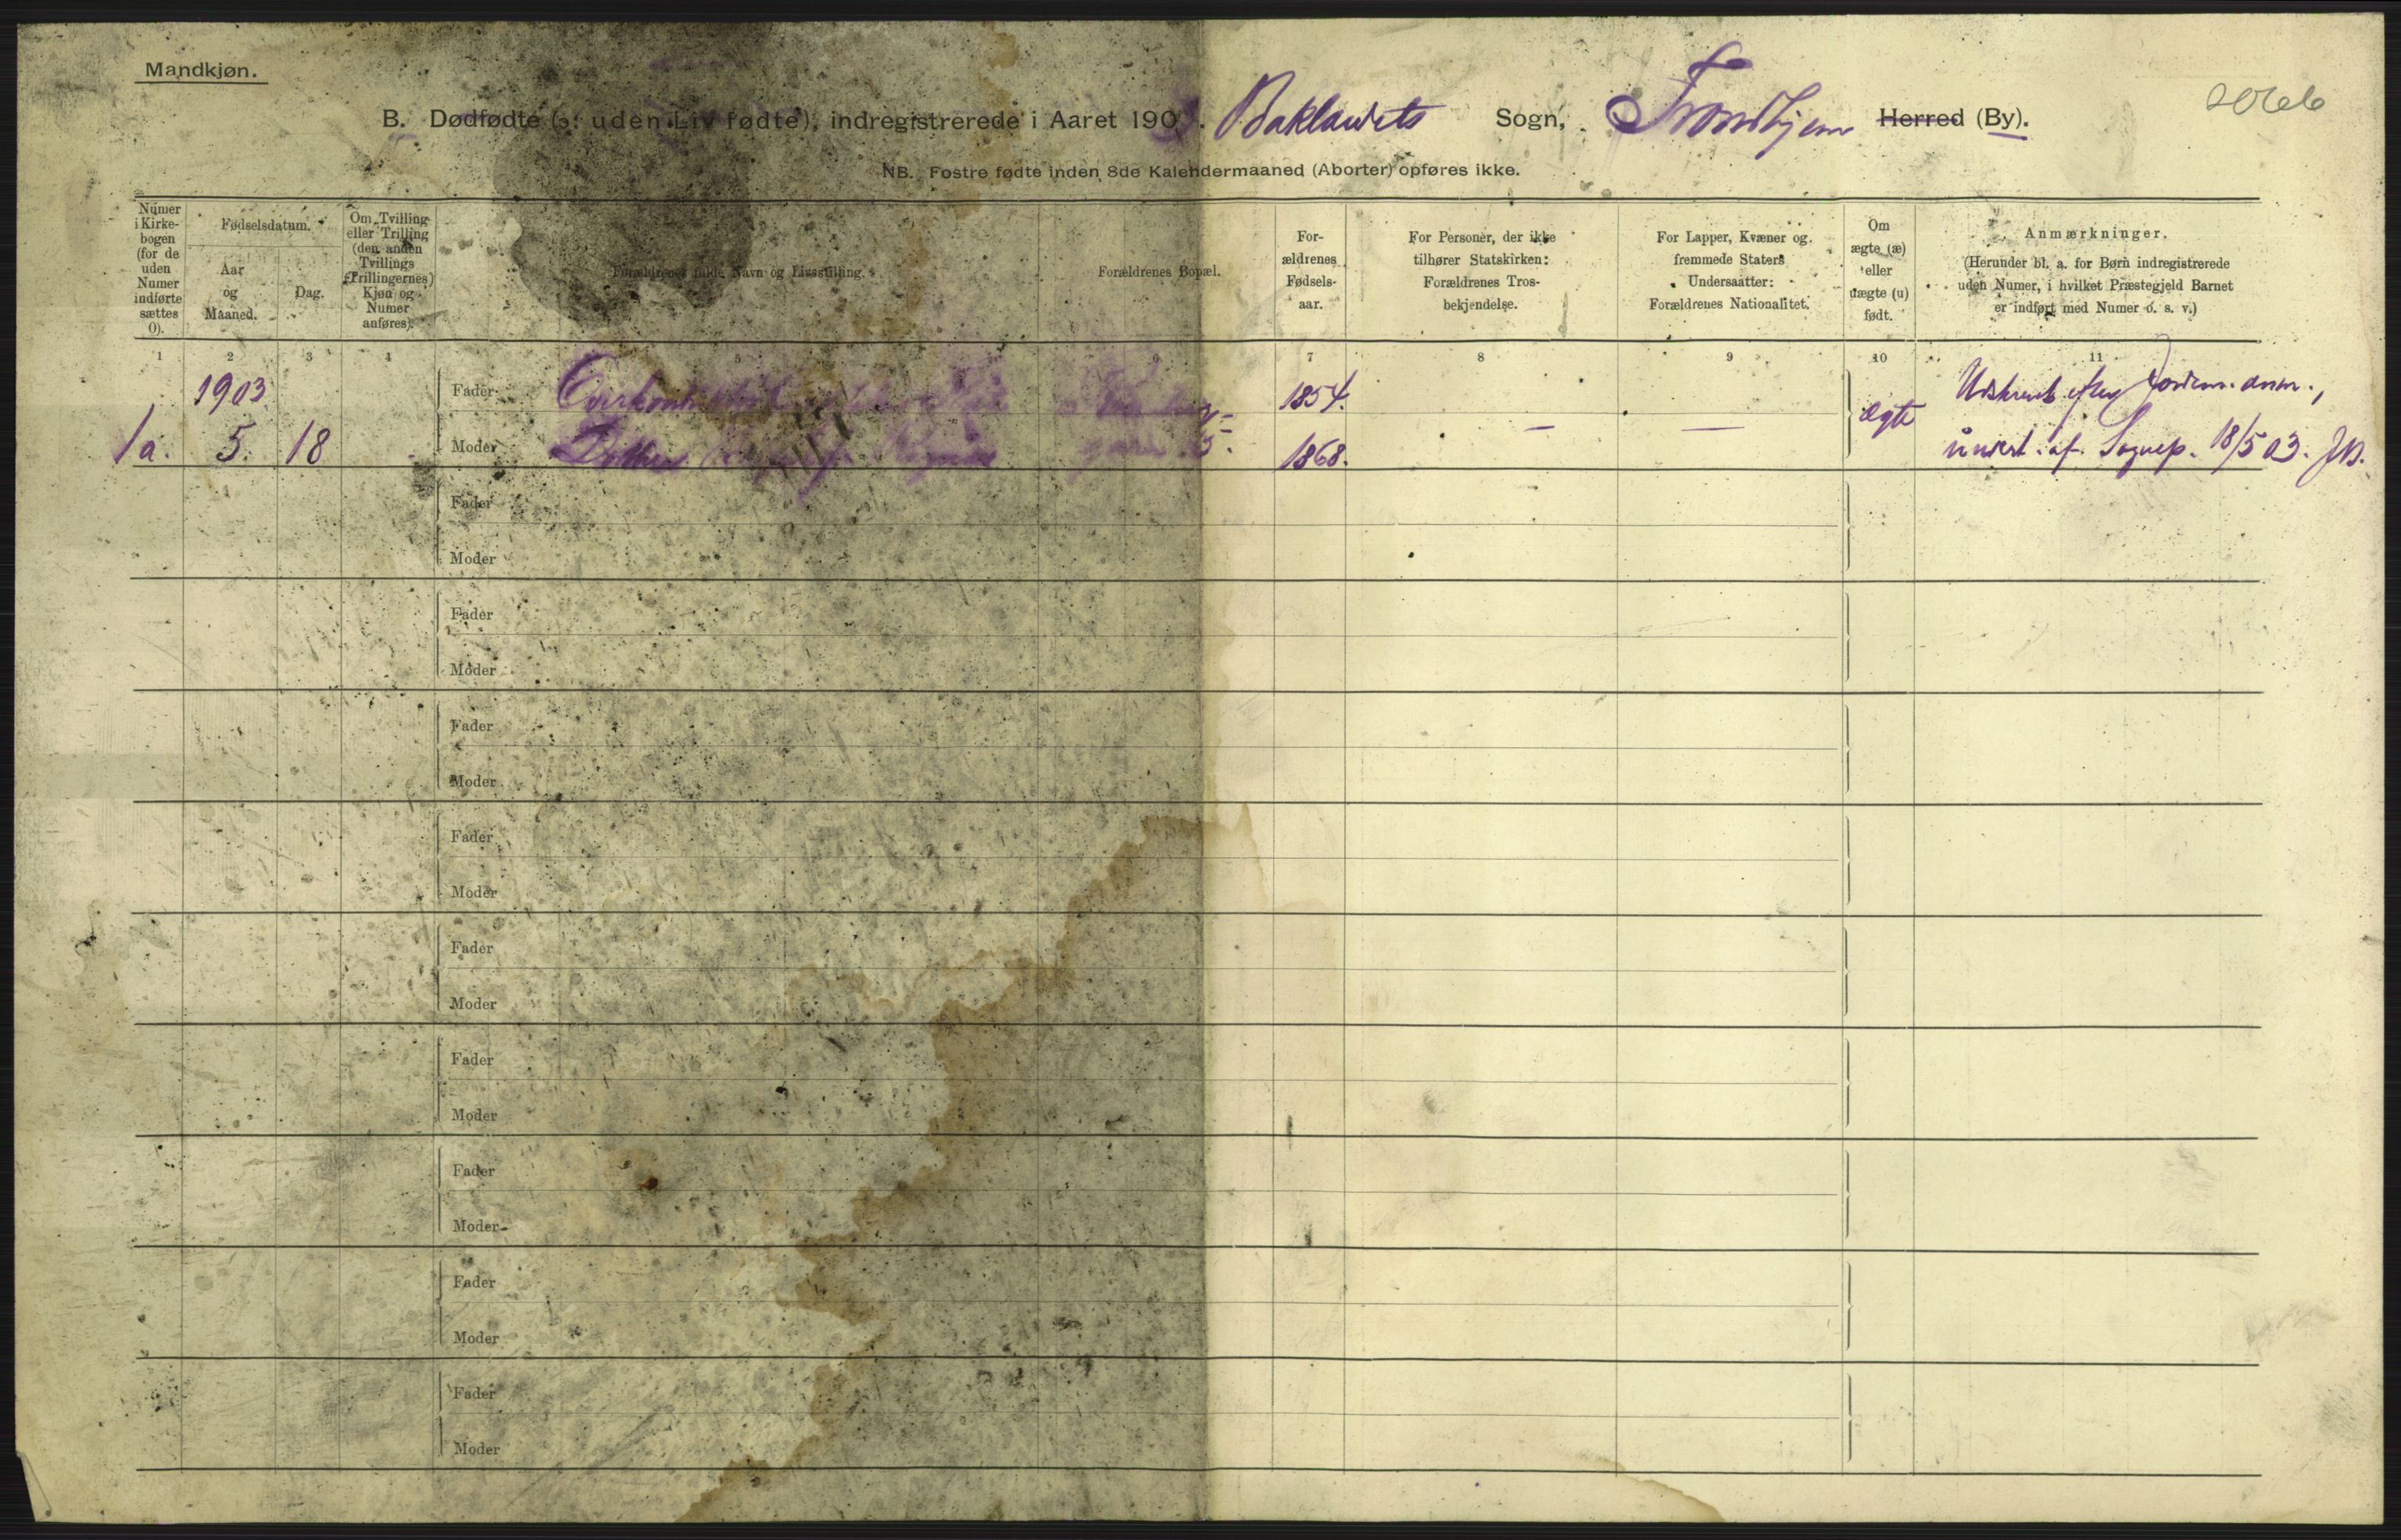 Mandkjøn.
B. Dødfødte (ɔ: uden Liv fødte), indregistrerede i Aaret 1903. Baklandets Sogn, Trondhjem Herred (By).
NB. Fostre fødte inden 8de Kalendermaaned (Aborter) opføres ikke.
Numer
i Kirke-
bogen
(for de
uden
Numer
indførte
sættes
0).
Fødselsdatum.
Aar
og
Maaned.
Dag.
Om Tvilling
eller Trilling
(den anden
Tvillings
(Trillingernes)
Kjøn og
Numer
anføres).
Forældrenes fulde Navn og Livsstilling.
Forældrenes Bopæl.
For-
ældrenes
Fødsels-
aar.
For Personer, der ikke
tilhører Statskirken:
Forældrenes Tros-
bekjendelse.
For Lapper, Kvæner og
fremmede Staters
Undersaatter:
Forældrenes Nationalitet.
Om
ægte (æ)
eller
uægte (u)
født.
Anmærkninger.
(Herunder bl. a. for Børn indregistrerede
uden Numer, i hvilket Præstegjeld Barnet
er indført med Numer o. s. v.)
1 2 3 4 5 6 7 8 9 10 11
1903
Fader
1854.
1a. 5. 18
Moder
1868.
— —
ægte
18/5 03.
Fader
Moder
Fader
Moder
Fader
Moder
Fader
Moder
Fader
Moder
Fader
Moder
Fader
Moder
Fader
Moder
Fader
Moder